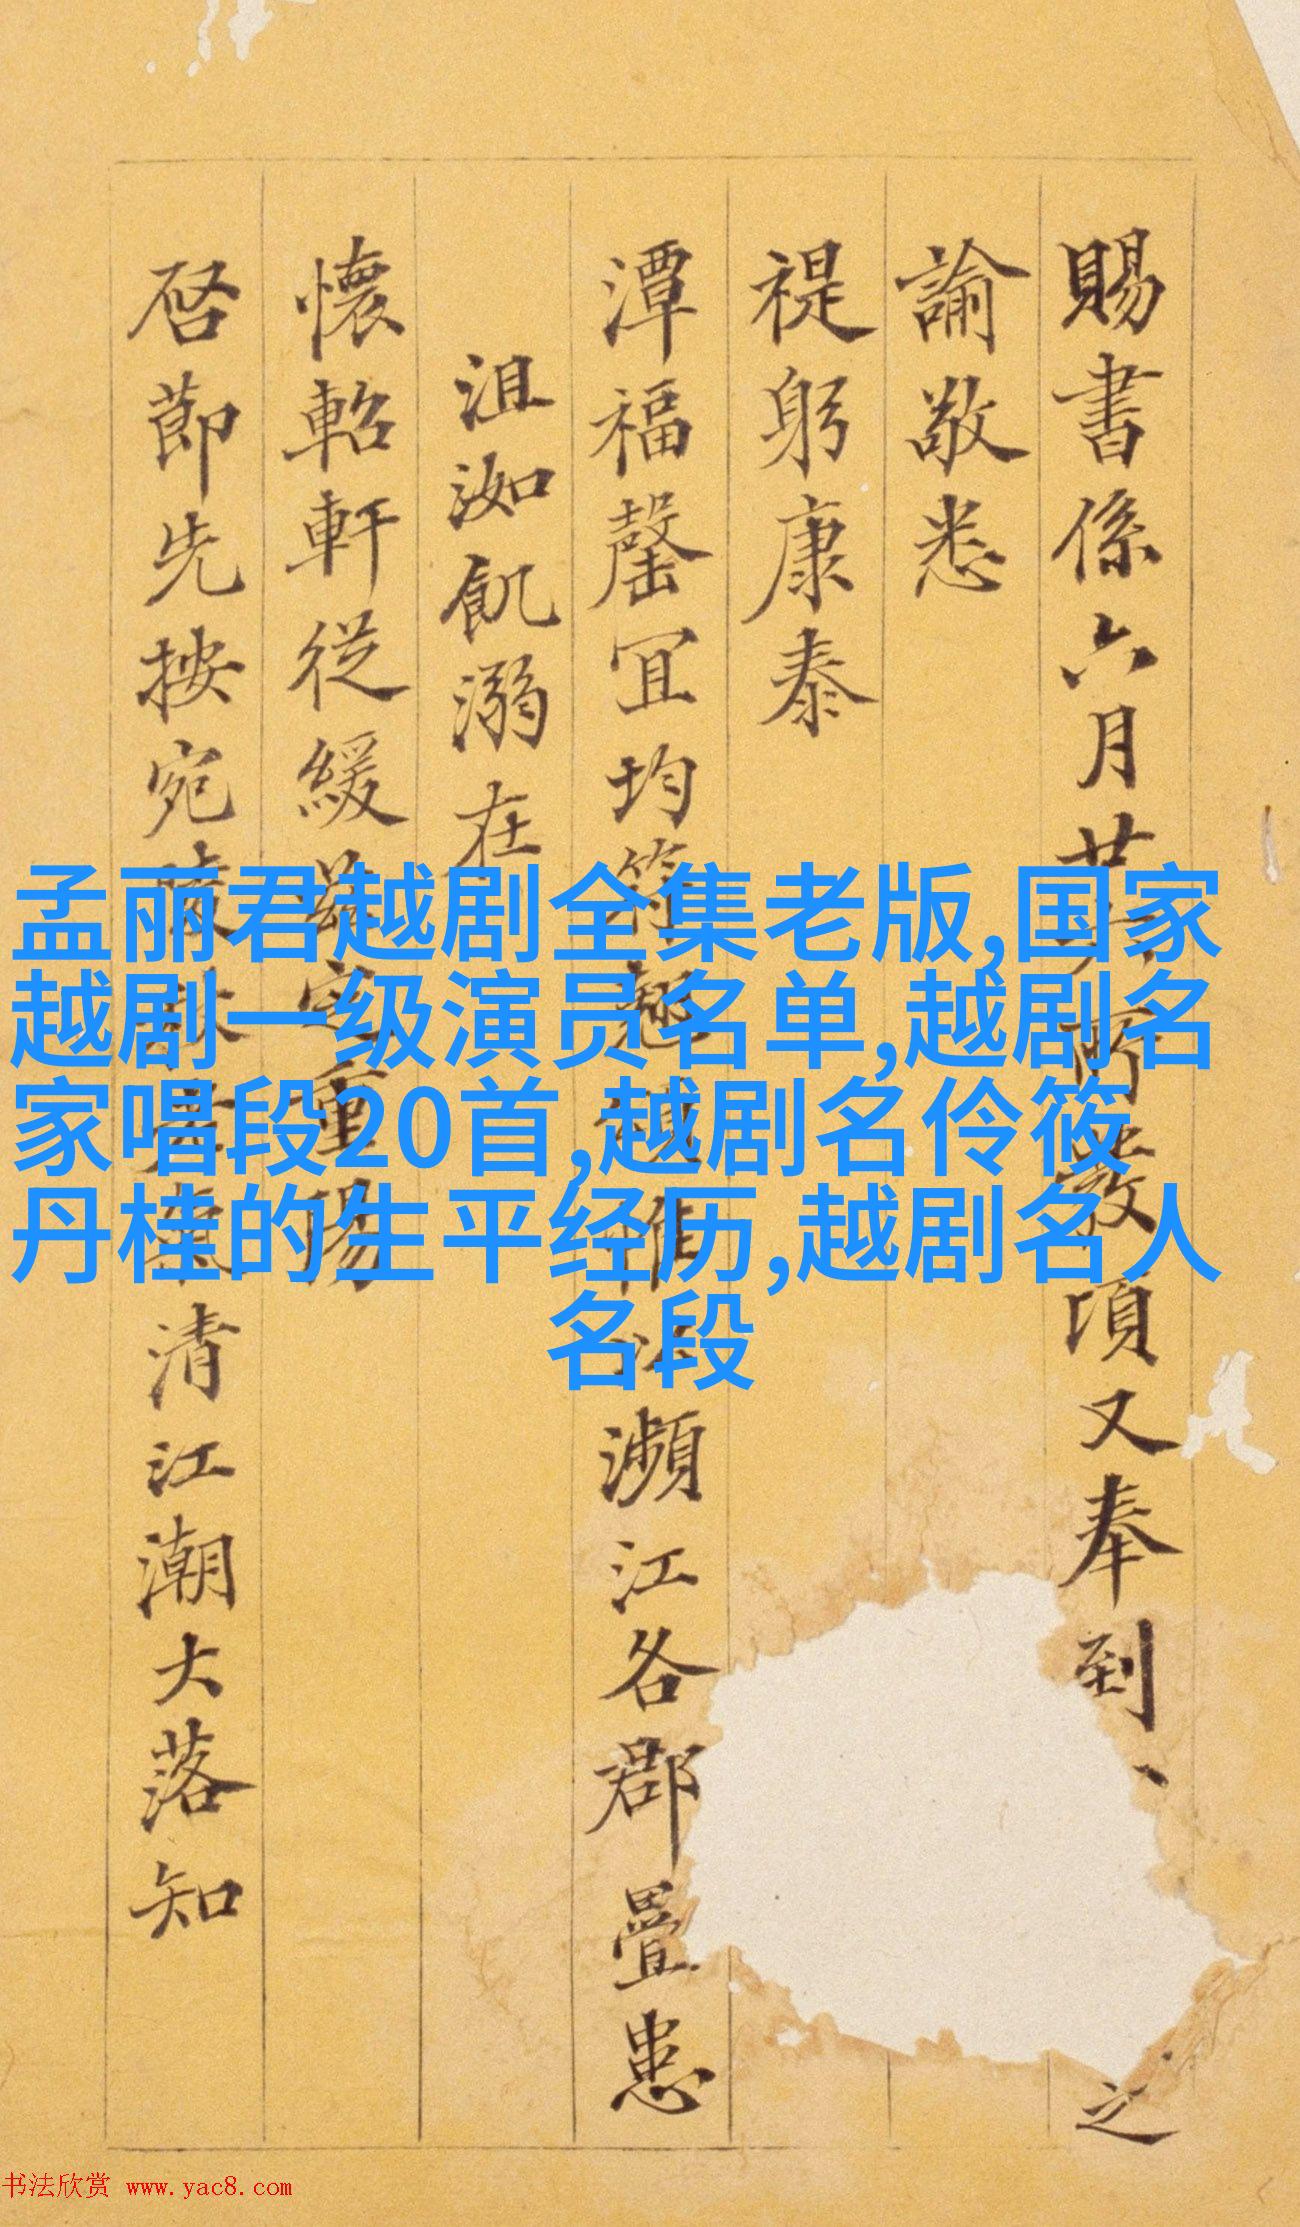 賜書係六月廿所發項又奉到、之
諭敬悉
禔躬康泰
潭福罄宜均符惟以瀕江各郡疊患
沮洳飢溺在
懷軺軒從緩定重陽
启節先按宛陵清江潮大落知
孟丽君越剧全集老版,国家
越剧一级演员名单,越剧名
家唱段20首,越剧名伶筱
丹桂的生平经历,越剧名人
名段
书法欣赏 www.yac8.com